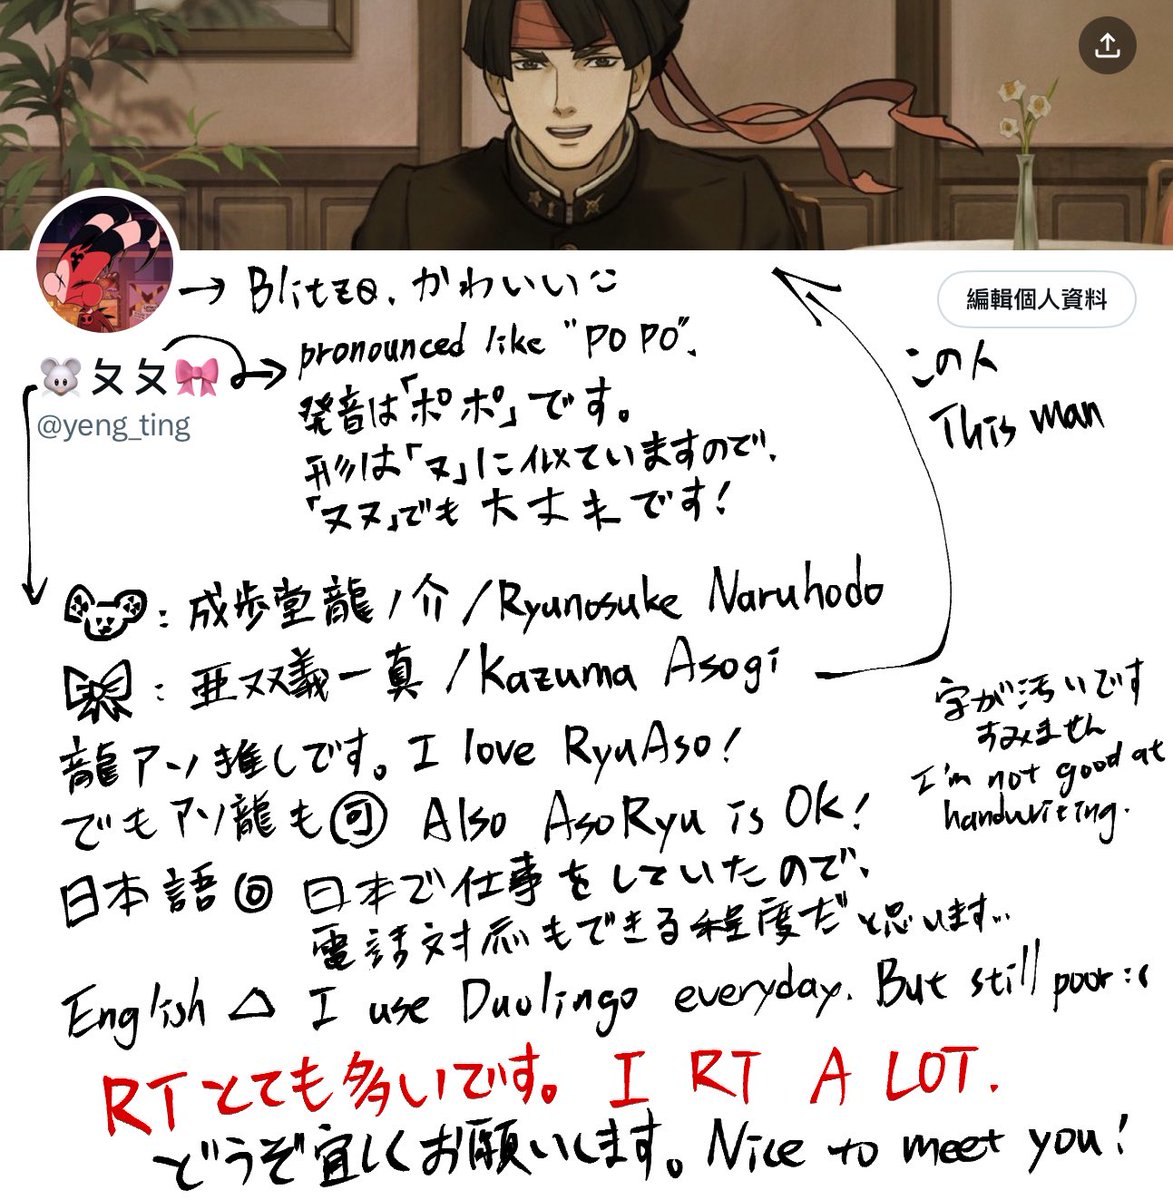 編輯個人資料
→ Blitzø. かわいい
🐭ㄆㄆ🎀
@yeng_ting
pronounced like "PO PO".
発音は「ポポ」です。
形は「ヌ」に似ていますので、
「ヌヌ」でも大丈夫です!
この人
This man
:成歩堂龍ノ介/Ryunosuke Naruhodo
:亜双義一真/Kazuma Asogi
龍アソ推しです。I love RyuAso!
でもアソ龍も可 Also AsoRyu is OK!
字が汚いです
すみません
I'm not good at
handwriting.
日本語◎ 日本で仕事をしていたので、
電話対応もできる程度だと思います…
English △ I use Duolingo everyday. But still poor :(
RTとても多いです。I RT A LOT.
どうぞ宜しくお願いします。Nice to meet you!